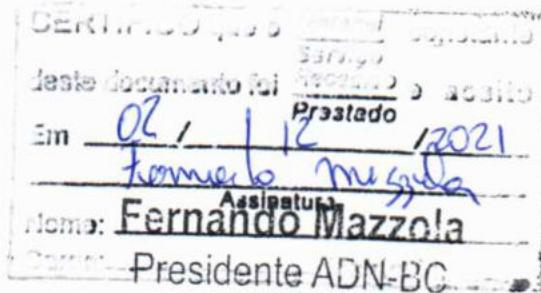 CERTIFICO que o
Serviço
deste documento foi Prestado e aceito
Em 02 / 12 /2021
Fernando Mazzola
Assinatura
Nome: Fernando Mazzola
Presidente ADN-BC